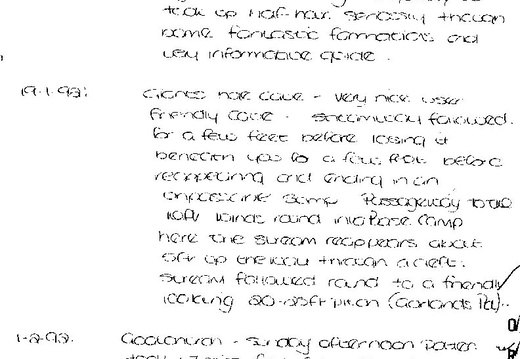 took up half-hour sensosity through
some fantastic formations and
very informative guide.
19.1.92: Giants hole cave - very nice user
friendly cave. Streamway followed
for a few feet before losing it
beneath you for a few feet before
reappearing and ending in an
impassable sump Passageway to the
left winds round into Base Camp
here the stream reappears about
off up the way through a cleft.
stream followed round to a friendly
looking 20-25ft pitch (Garlands Pot).
1-2-92. Goatchurch - Sunday afternoon